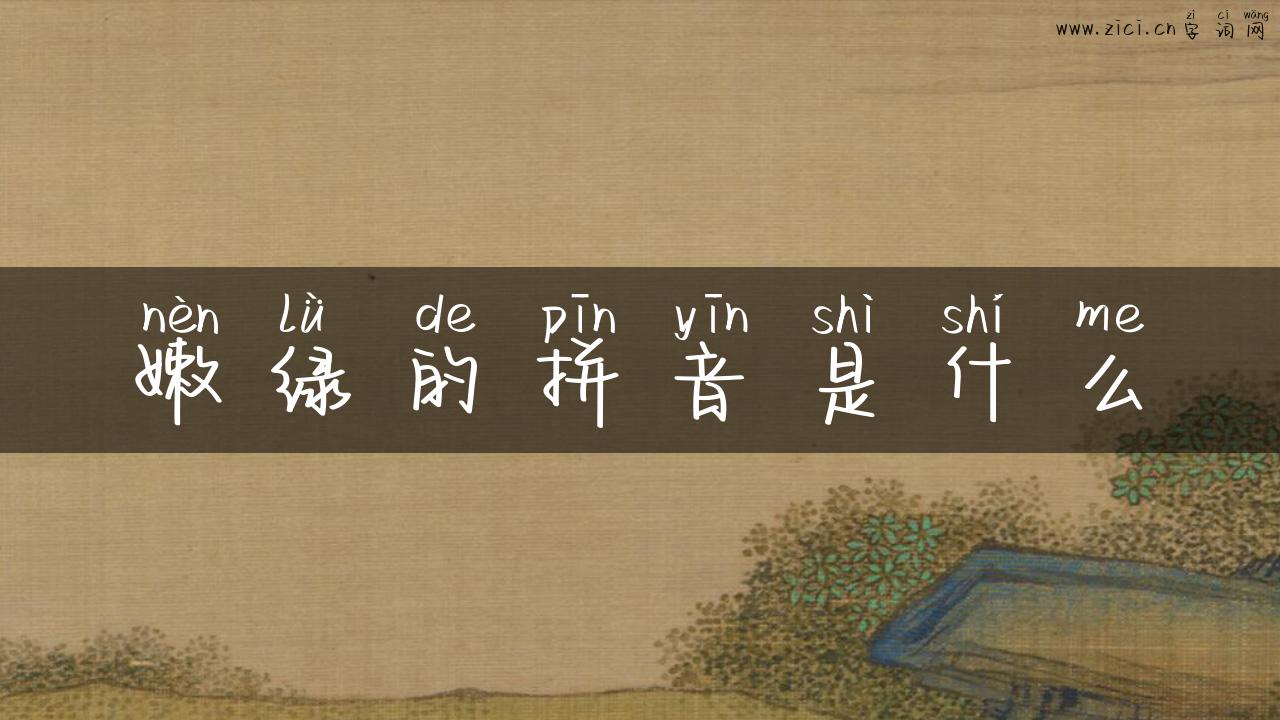 zì cí wǎng
www.zici.cn 字 词 网
nèn lǜ de pīn yīn shì shí me
嫩 绿 的 拼 音 是 什 么